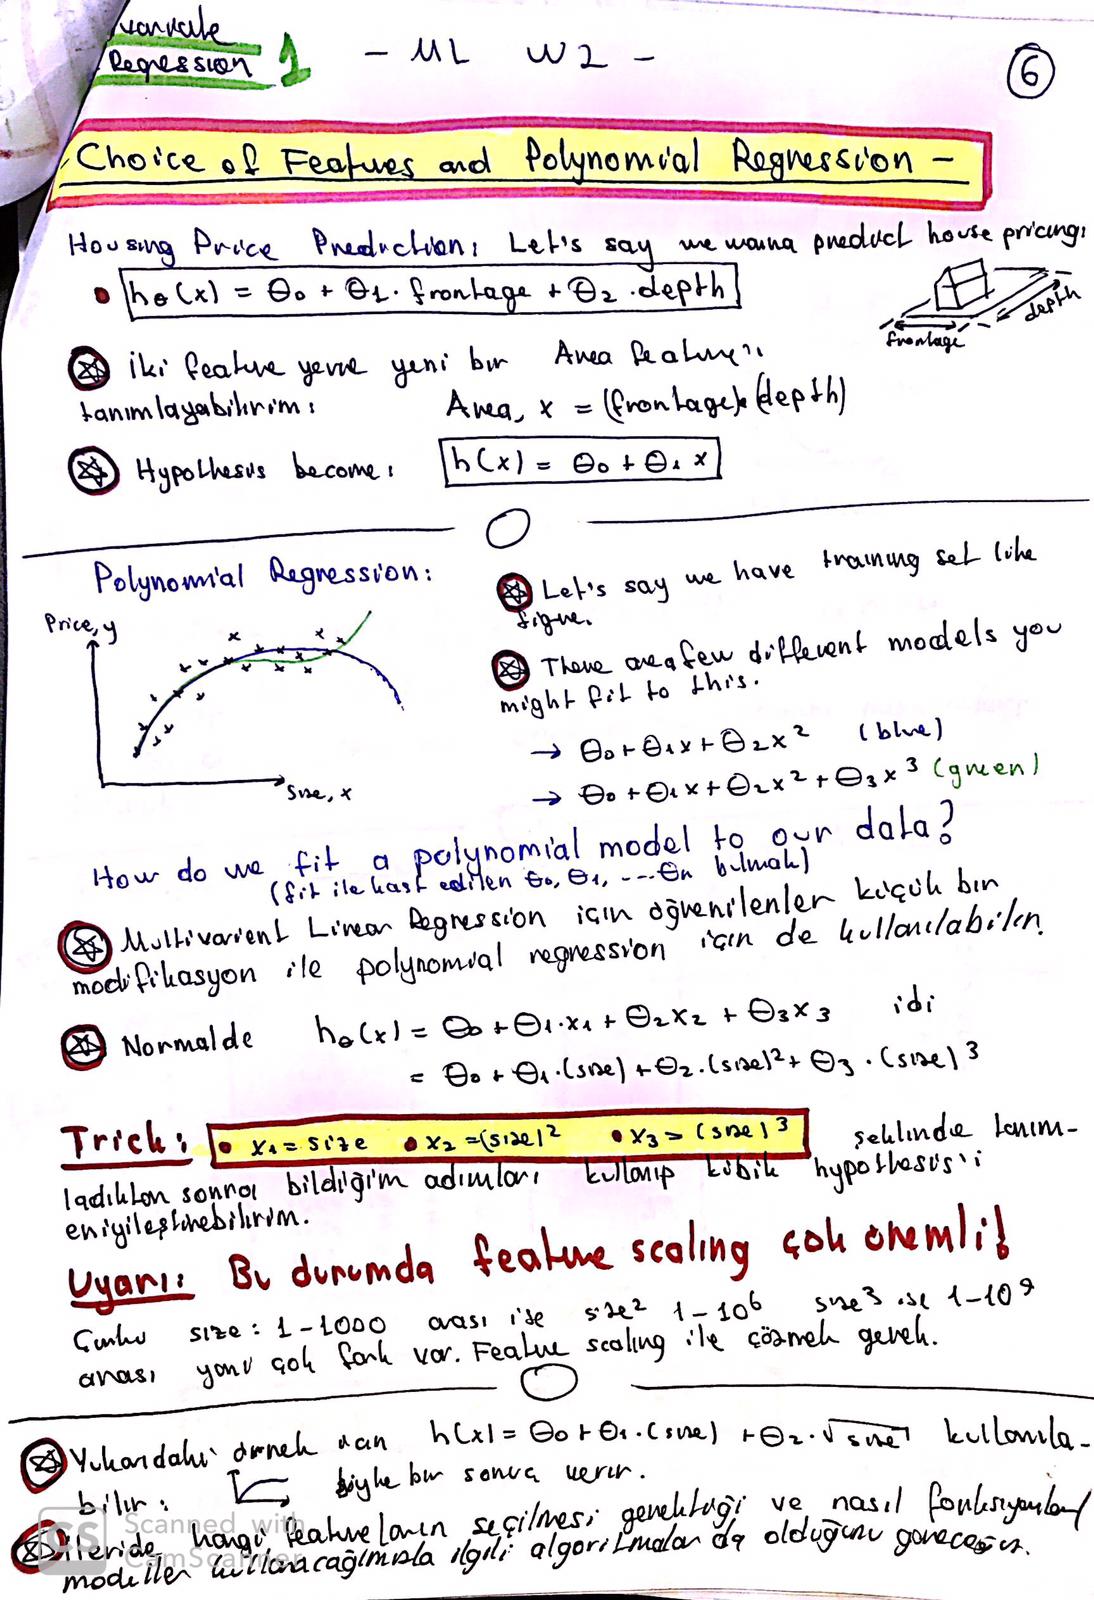 Regression 1
- ML W2 -
6
Choice of Features and Polynomial Regression -
Housing Price Prediction: Let's say we wanna predict house pricing:
• hθ(x) = θ0 + θ1. frontage + θ2 .depth
frontage
depth
İki feature yerine yeni bir Area feature'ı
tanımlayabilirim: Area, x = (frontage)x(depth)
Hypothesis become: h(x) = θ0 + θ1 x
Polynomial Regression:
Price, y
Size, x
Let's say we have training set like
figure.
There are a few different models you
might fit to this.
→ θ0 + θ1x + θ2x² (blue)
→ θ0 + θ1x + θ2x² + θ3x³ (green)
How do we fit a polynomial model to our data?
(fit ile kast edilen θ0, θ1, ... θn bulmak)
Multivarient Linear Regression için öğrenilenler küçük bir
modifikasyon ile polynomial regression için de kullanılabilir.
Normalde hθ(x) = θ0 + θ1.x1 + θ2x2 + θ3x3 idi
= θ0 + θ1.(size) + θ2.(size)² + θ3.(size)³
Trick: • x1 = size • x2 = (size)² • x3 = (size)³ şeklinde tanım-
ladıktan sonra bildiğim adımları kullanıp kübik hypothesis'i
eniyileştirebilirim.
Uyarı: Bu durumda feature scaling çok önemli!
Çünkü size: 1-1000 arası ise size² 1-10⁶ size³ ise 1-10⁹
arası yani çok fark var. Feature scaling ile çözmek gerek.
Yukarıdaki örnek h(x) = θ0 + θ1.(size) + θ2.√size kullanıla-
bilir: böyle bir sonuç verir.
İleride hangi featureların seçilmesi gerektiği ve nasıl fonksiyonlar/
modeller kullanacağımızla ilgili algoritmalar da olduğunu göreceğiz.
CS Scanned with
CamScanner